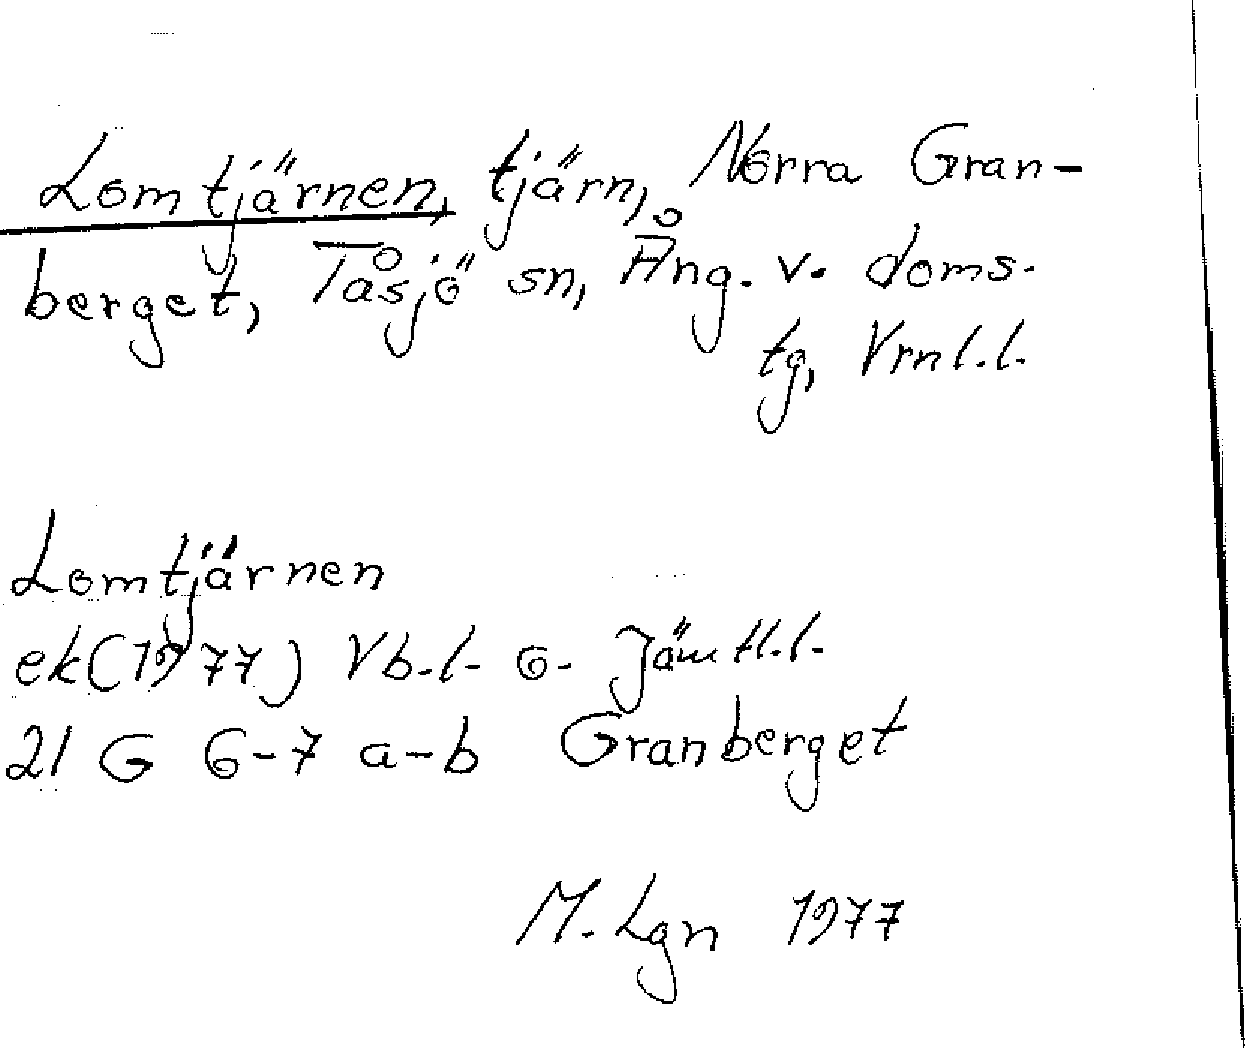 Lomtjärnen, tjärn, Norra Gran-
berget, Tåsjö sn, Ång. v. doms.
tg, Vrnl.l.
Lomtjärnen
ek(1977) Vb.l. o. Jämtl.l.
21 G 6-7 a-b Granberget
M. Lgn 1977